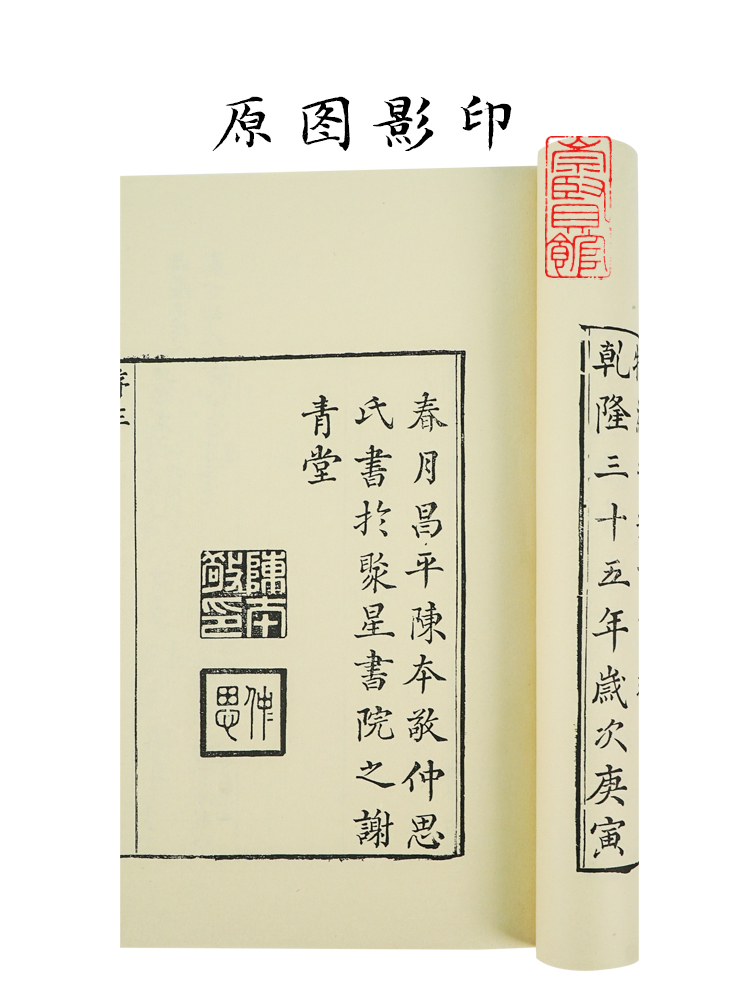 原图影印
崇賢館
乾隆三十五年歲次庚寅
春月昌平陳本敬仲思
氏書於聚星書院之謝
青堂
陳本敬印
仲思